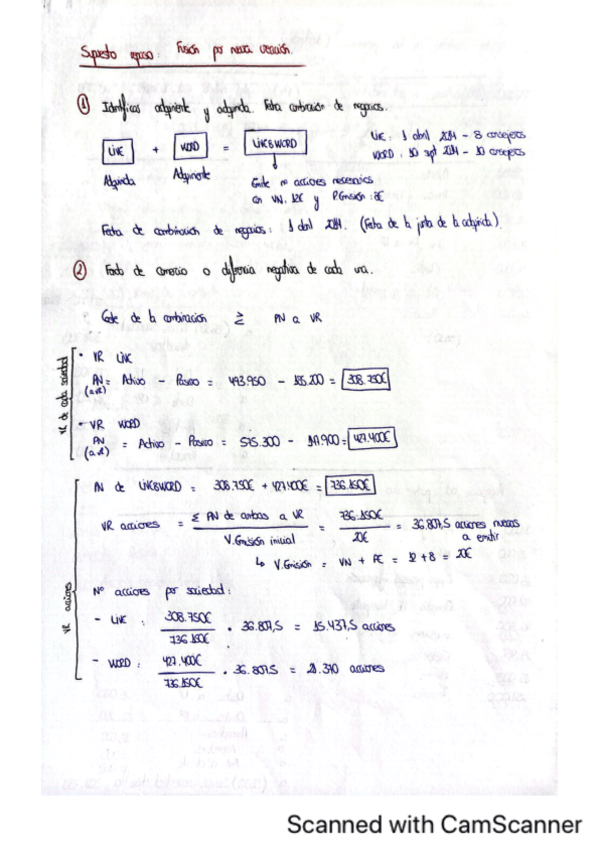 Supuesto repaso: Fusión por nueva creación.
① Identificar adquirente y adquirida. Fecha combinación de negocios.
LIVE + WORD = LIVE&WORD
LIVE: 1 abril 2014 - 8 consejeros
WORD: 30 sept 2014 - 10 consejeros
Adquirida Adquirente
Emite nº acciones necesarias
con VN: 12€ y P.Emisión: 8€
Fecha de combinación de negocios: 1 abril 2014. (Fecha de la junta de la adquirida).
② Fondo de comercio o diferencia negativa de cada una.
Coste de la combinación ≷ PN a VR
VR de cada sociedad
• VR LIVE
PN = Activo - Pasivo = 493.950 - 185.200 = 308.750€
(a VR)
• VR WORD
PN = Activo - Pasivo = 575.300 - 147.900 = 427.400€
(a VR)
VR acciones
PN de LIVE&WORD = 308.750€ + 427.400€ = 736.150€
VR acciones = Σ PN de ambas a VR / V.Emisión inicial = 736.150€ / 20€ = 36.807,5 acciones nuevas
a emitir
↳ V.Emisión = VN + PE = 12 + 8 = 20€
Nº acciones por sociedad:
- LIVE: 308.750€ / 736.150€ · 36.807,5 = 15.437,5 acciones
- WORD: 427.400€ / 736.150€ · 36.807,5 = 21.370 acciones
Scanned with CamScanner